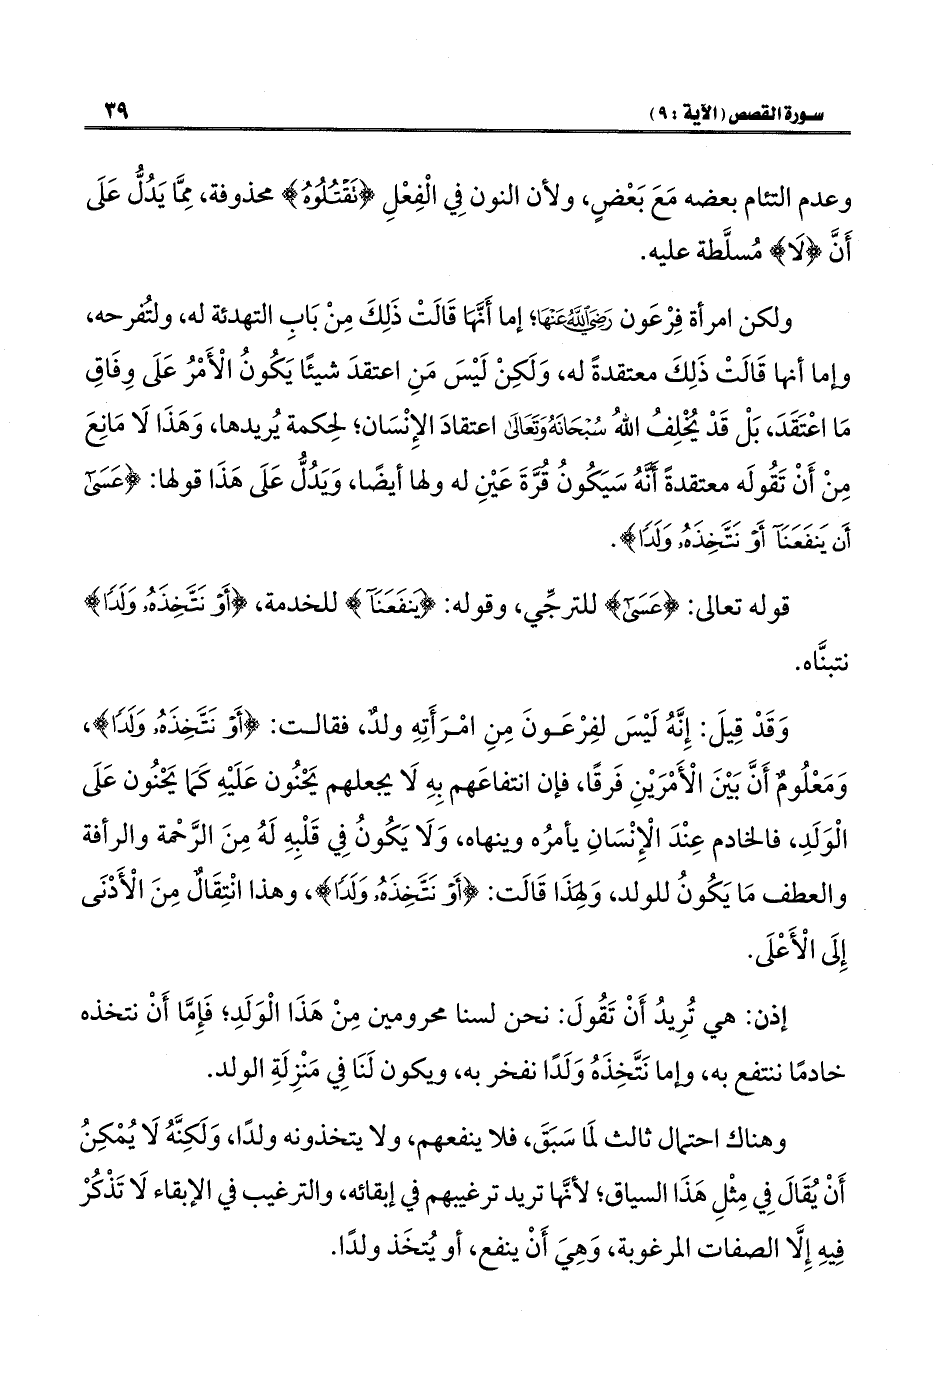 سورة القصص (الآية : ٩)
٣٩
وعدم التئام بعضه مَعَ بَعْضٍ، ولأن النون فِي الْفِعْلِ ﴿نَقْتُلُوهُ﴾ محذوفة، مِمَّا يَدُلُّ عَلَى
أَنَّ ﴿لَا﴾ مُسلَّطة عليه.
ولكن امرأة فِرْعَون رَضِيَ اللَّهُ عَنْهَا؛ إما أَنَّهَا قَالَتْ ذَلِكَ مِنْ بَابِ التهدئة له، ولتُفرحه،
وإما أنها قَالَتْ ذَلِكَ معتقدةً له، وَلَكِنْ لَيْسَ مَنِ اعتقدَ شيئًا يَكُونُ الْأَمْرُ عَلَى وِفَاقِ
مَا اعْتَقَدَ، بَلْ قَدْ يُخْلِفُ اللهُ سُبْحَانَهُ وَتَعَالَى اعتقادَ الإِنْسَان؛ لحِكمة يُريدها، وَهَذَا لَا مَانِعَ
مِنْ أَنْ تَقُولَه معتقدةً أَنَّهُ سَيَكُونُ قُرَّةَ عَيْنٍ له ولها أيضًا، وَيَدُلُّ عَلَى هَذَا قولها: ﴿عَسَىٰٓ
أَن يَنفَعَنَآ أَوْ نَتَّخِذَهُۥ وَلَدًا﴾.
قوله تعالى: ﴿عَسَىٰٓ﴾ للترجِّي، وقوله: ﴿يَنفَعَنَآ﴾ للخدمة، ﴿أَوْ نَتَّخِذَهُۥ وَلَدًا﴾
نتبنَّاه.
وَقَدْ قِيلَ: إِنَّهُ لَيْسَ لفِرْعَـونَ مِنِ امْـرَأَتِهِ ولدٌ، فقالـت: ﴿أَوْ نَتَّخِذَهُۥ وَلَدًا﴾،
وَمَعْلُومٌ أَنَّ بَيْنَ الْأَمْرَيْنِ فَرقًا، فإن انتفاعَهم بِهِ لَا يجعلهم يَحْنُون عَلَيْهِ كَمَا يَحْنُون عَلَى
الْوَلَدِ، فالخادم عِنْدَ الْإِنْسَانِ يأمرُه وينهاه، وَلَا يَكُونُ فِي قَلْبِهِ لَهُ مِنَ الرَّحْمة والرأفة
والعطف مَا يَكُونُ للولد، وَلِهَذَا قَالَت: ﴿أَوْ نَتَّخِذَهُۥ وَلَدًا﴾، وهذا انْتِقَالٌ مِنَ الْأَدْنَى
إِلَى الْأَعْلَى.
إذن: هي تُرِيدُ أَنْ تَقُولَ: نحن لسنا محرومين مِنْ هَذَا الْوَلَدِ؛ فَإِمَّا أَنْ نتخذه
خادمًا ننتفع به، وإما نَتَّخِذَهُ وَلَدًا نفخر به، ويكون لَنَا فِي مَنْزِلَةِ الولد.
وهناك احتمال ثالث لمَا سَبَقَ، فلا ينفعهم، ولا يتخذونه ولدًا، وَلَكِنَّهُ لَا يُمْكِنُ
أَنْ يُقَالَ فِي مِثْلِ هَذَا السياق؛ لأنَّها تريد ترغيبهم في إبقائه، والترغيب في الإبقاء لَا تَذْكُرْ
فِيهِ إِلَّا الصفات المرغوبة، وَهِيَ أَنْ ينفع، أو يُتخَذ ولدًا.